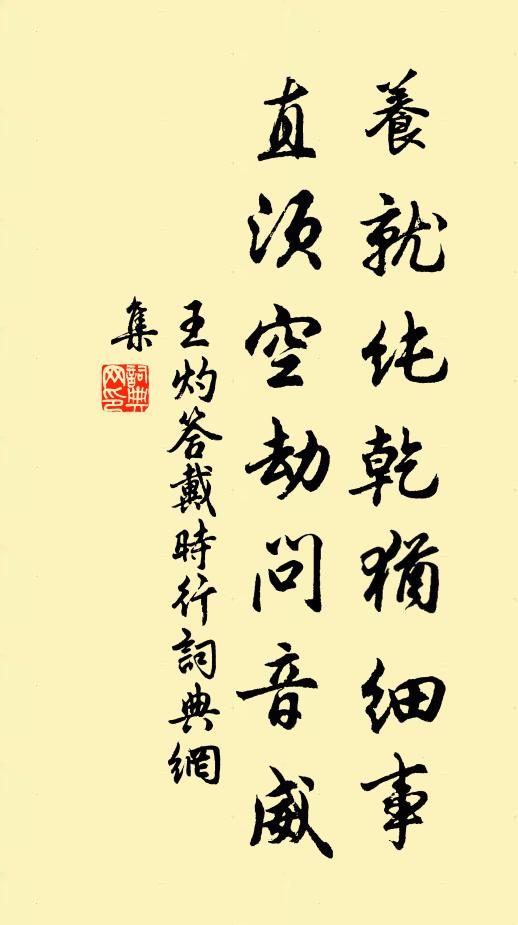 養就純乾猶細事
直須空劫問音威
王灼答戴時行詞典網
集
詞典網印